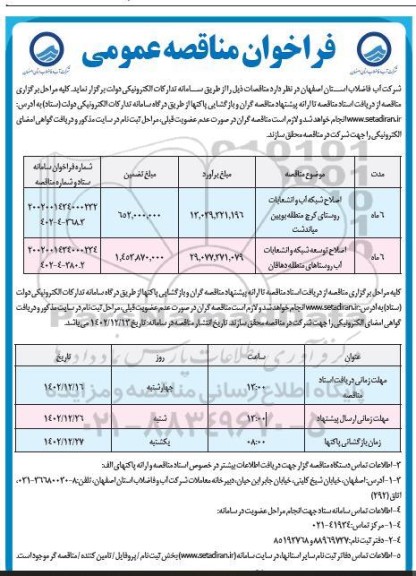 فراخوان مناقصه عمومی
شرکت آب فاضلاب استان اصفهان در نظر دارد مناقصات ذیل را از طریق سامانه تدارکات الکترونیکی دولت برگزار نماید. کلیه مراحل برگزاری
مناقصه از دریافت اسناد مناقصه تا ارائه پیشنهاد مناقصه گران و بازگشایی پاکتها از طریق درگاه سامانه تدارکات الکترونیکی دولت (ستاد) به آدرس:
www.setadiran.ir انجام خواهد شد و لازم است مناقصه گران در صورت عدم عضویت قبلی، مراحل ثبت نام در سایت مذکور و دریافت گواهی امضای
الکترونیکی را جهت شرکت در مناقصه محقق سازند.
مدت موضوع مناقصه مبلغ برآورد مبلغ تضمین شماره فراخوان سامانه ستاد و شماره مناقصه
۶ ماه اصلاح شبکه آب و انشعابات روستای کرچ منطقه بویین میاندشت ۱۳,۰۲۹,۳۲۱,۱۹۶ ۶۵۲,۰۰۰,۰۰۰ ۲۰۰۲۰۰۱۴۳۴۰۰۰۲۳۲ ۴۰۲-۴-۳۶۸.۲
۶ ماه اصلاح توسعه شبکه و انشعابات آب روستاهای منطقه دهاقان ۲۹,۰۷۷,۳۷۱,۰۷۹ ۱,۴۵۳,۸۷۰,۰۰۰ ۲۰۰۲۰۰۱۴۳۴۰۰۰۲۳۴ ۴۰۲-۴-۳۸۰.۲
کلیه مراحل برگزاری مناقصه از دریافت اسناد مناقصه تا ارائه پیشنهاد مناقصه گران و بازگشایی پاکتها از طریق درگاه سامانه تدارکات الکترونیکی دولت
(ستاد) به آدرس: www.setadiran.ir انجام خواهد شد و لازم است مناقصه گران در صورت عدم عضویت قبلی، مراحل ثبت نام در سایت مذکور و دریافت
گواهی امضای الکترونیکی را جهت شرکت در مناقصه محقق سازند. تاریخ انتشار مناقصه در سامانه: تاریخ ۱۴۰۲/۱۲/۱۳ می‌باشد.
عنوان ساعت روز تاریخ
مهلت زمانی دریافت اسناد مناقصه ۱۲:۰۰ چهارشنبه ۱۴۰۲/۱۲/۱۶
مهلت زمانی ارسال پیشنهاد ۱۲:۰۰ شنبه ۱۴۰۲/۱۲/۲۶
زمان بازگشایی پاکتها ۰۸:۰۰ یکشنبه ۱۴۰۲/۱۲/۲۷
۳- اطلاعات تماس دستگاه مناقصه گزار جهت دریافت اطلاعات بیشتر در خصوص اسناد مناقصه و ارائه پاکتهای الف:
۱-۳- آدرس: اصفهان، خیابان شیخ کلینی، خیابان جابر ابن حیان، دبیرخانه معاملات شرکت آب و فاضلاب استان اصفهان، تلفن: ۸-۳۶۶۸۰۰۳۰-۰۳۱،
اتاق (۲۹۲)
۴- اطلاعات تماس سامانه ستاد جهت انجام مراحل عضویت در سامانه:
۱-۴- مرکز تماس: ۴۱۹۳۴-۰۲۱
۲-۴- دفتر ثبت نام: ۸۸۹۶۹۷۳۷ و ۸۵۱۹۳۷۶۸
۵- اطلاعات تماس دفاتر ثبت نام سایر استانها، در سایت سامانه (www.setadiran.ir) بخش ثبت نام / پروفایل / تامین کننده / مناقصه گر موجود است.